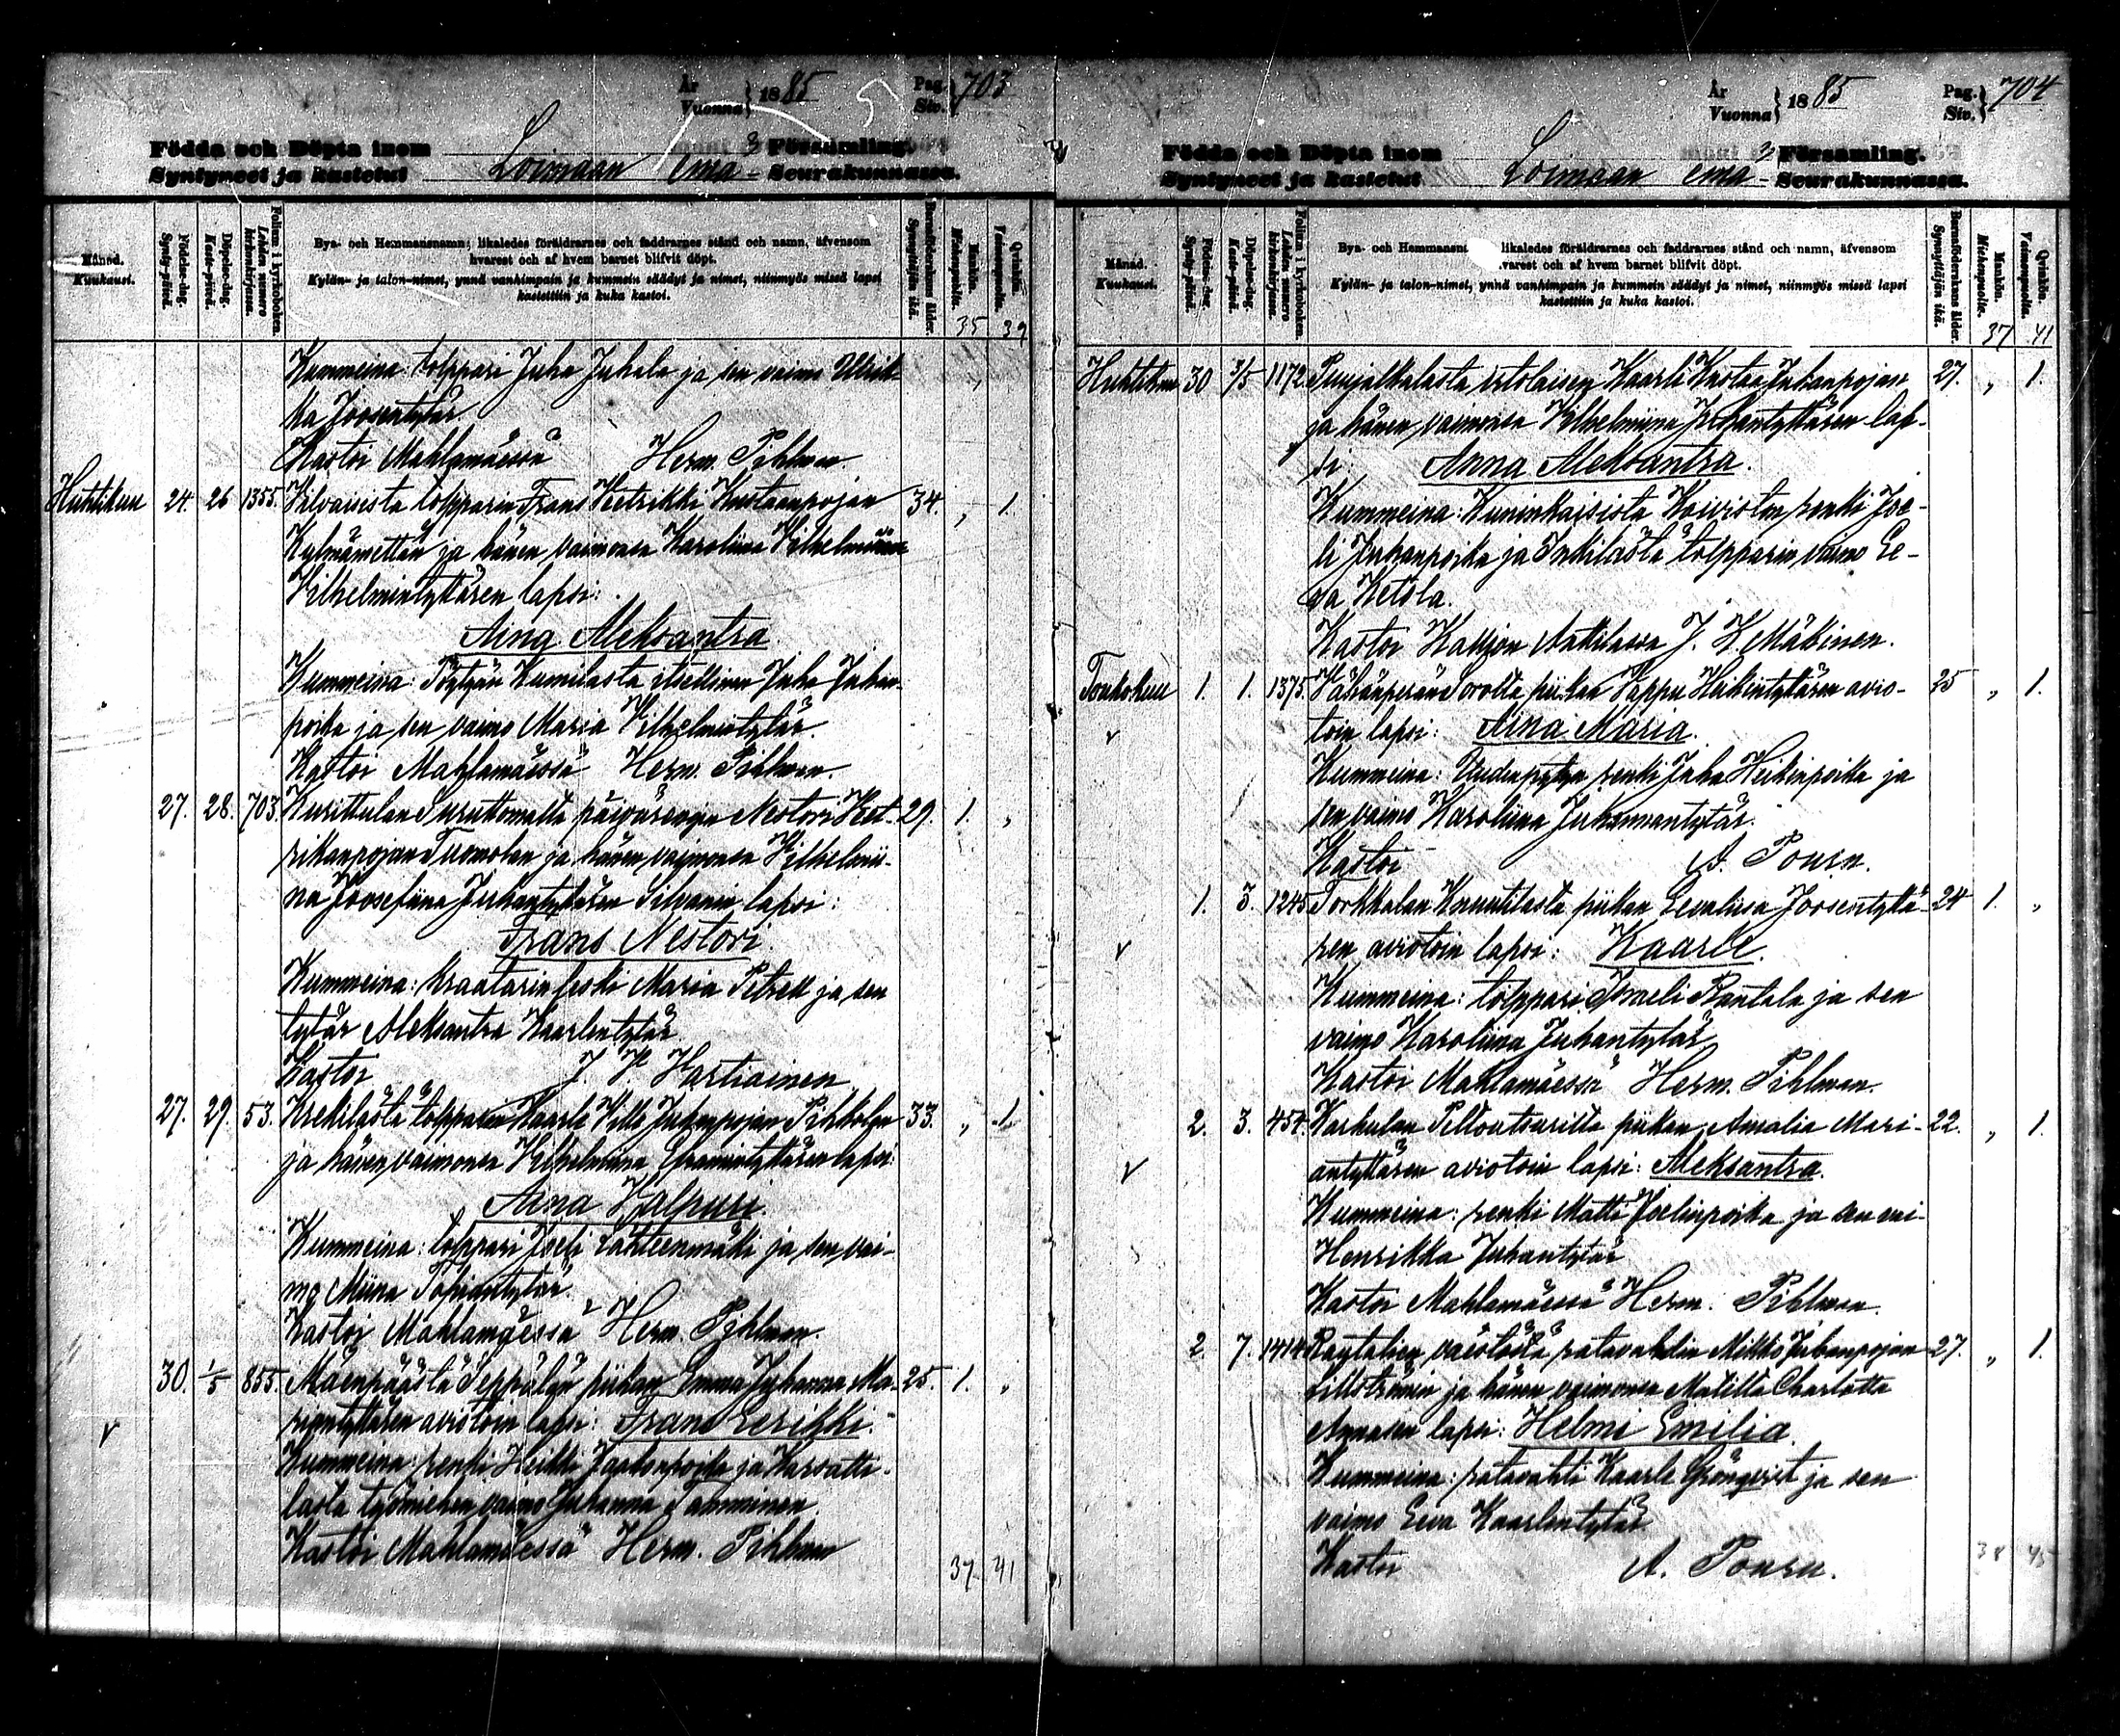 År
Vuonna } 1885
Pag.
Siv. } 703
Födda och Döpta inom Församling.
Syntyneet ja kastetut Loimaan emä- Seurakunnassa.
Månad.
Kuukausi.
Födelse-dag.
Synty-päivä.
Döpelse-dag.
Kaste-päivä.
Folium i kyrkoboken.
Lehden numero kirkonkirjassa.
Bya- och Hemmansnamn; likaledes föräldrarnes och faddrarnes stånd och namn, äfvensom
hvarest och af hvem barnet blifvit döpt.
Kylän- ja talon-nimet, ynnä vanhimpain ja kummein säädyt ja nimet, niinmyös missä lapsi
kastettiin ja kuka kastoi.
Barnaföderskans ålder.
Synnyttäjän ikä.
Mankön.
Miehenpuolta.
Qvinkön.
Vaimonpuolta.
35 39
Kummeina: tolppari Juha Juhala ja sen vaimo Ulrik-
ka Joosentytär
Kastoi Mahlamäessä Herm. Pihlman.
Huhtikuu 24. 26 1355. tolpparin Frans Kustaanpojan 34. „ 1.
Kylmämettän ja hänen vaimonsa Karoliina Vilhelmiina
Vilhelmintyttären lapsi:
Aina Aleksantra
Kummeina: Pöytyän Kumilasta itsellinen Juha Juhan-
poika ja sen vaimo Maria Vilhelmintytär.
Kastoi Mahlamäessä Herm. Pihlman.
27. 28. 703. Kurittulan Suruttomalta päivärengin Nestori Ket- 29. 1. „
rikanpojan Tuomolan ja hänen vaimonsa Vilhelmii-
na Joosefiina Juhantyttären Silvanin lapsi:
Frans Nestori.
Kummeina: kraatarin leski Maria Petrell ja sen
tytär Aleksantra Kaarlentytär
Kastoi J. V. Hartiainen
27. 29. 53. Krekilästä tolpparin Kaarle Ville Juhanpojan Pihkolan 33. „ 1.
ja hänen vaimonsa Vilhelmiina Eframintyttären lapsi:
Aina Valpuri.
Kummeina: tolppari Joeli Lähteenmäki ja sen vai-
mo Miina Topiantytär
Kastoi Mahlamäessä Herm. Pihlman.
30. 1/5 855. Mäenpäästä Seppälän piikan Emma Juhanna Ma- 25. 1. „
riantyttären aviotoin lapsi: Frans Eerikki.
v
Kummeina: renki Heikki Jaakonpoika ja Karsatti-
lasta työmiehen vaimo Juhanna Tamminen.
Kastoi Mahlamäessä Herm. Pihlman
37 41
År
Vuonna } 1885
Pag.
Siv. } 704
Födda och Döpta inom Församling.
Syntyneet ja kastetut Loimaan emä- Seurakunnassa.
Månad.
Kuukausi.
Födelse-dag.
Synty-päivä.
Döpelse-dag.
Kaste-päivä.
Folium i kyrkoboken.
Lehden numero kirkonkirjassa.
Bya- och Hemmansn likaledes föräldrarnes och faddrarnes stånd och namn, äfvensom
varest och af hvem barnet blifvit döpt.
Kylän- ja talon-nimet, ynnä vanhimpain ja kummein säädyt ja nimet, niinmyös missä lapsi
kastettiin ja kuka kastoi.
Barnaföderskans ålder.
Synnyttäjän ikä.
Mankön.
Miehenpuolta.
Qvinkön.
Vaimonpuolta.
37 41
Huhtikuu 30 3/5 1172 Puujalkalasta Kaarli Kustaa Juhanpojan 27. „ 1.
ja hänen vaimonsa Vilhelmiina Juhantyttären lap-
si: Anna Aleksantra.
Kummeina: Kuninkaisista Koiviston renki Joe-
li Juhanpoika ja Inkilästä tolpparin vaimo Ee-
va Ketola.
Kastoi Kaujon Anttilassa J. K. Mäkinen.
Toukokuu 1. 1. 1375. Vähänperän Sorolta piikan Vappu Heikintyttären avio- 25 „ 1.
v
toin lapsi: Aina Maria.
Kummeina: renki Juha Heikinpoika ja
sen vaimo Karoliina Juhannantytär.
Kastoi A. Pouru.
1. 3. 1245 Torkkalan Knuutilasta piikan Eevaliisa Joosentyttä- 24 1. „
v
ren aviotoin lapsi: Kaarle.
Kummeina: tolppari Israeli Rantala ja sen
vaimo Karoliina Juhantytär
Kastoi Mahlamäessä Herm. Pihlman.
2. 3. 454. Karhulan piikan Amalia Mari- 22. „ 1.
v
antyttären aviotoin lapsi: Aleksantra.
Kummeina: renki Matti Joelinpoika ja sen vai-
Henrikka Juhantytär
Kastoi Mahlamäessä Herm. Pihlman.
2. 7. 1414 Rautatien väestöstä ratavahdin Mikko Juhanpojan 27. „ 1.
Lillströmin ja hänen vaimonsa Matilta Charlotta
lapsi: Helmi Emilia.
Kummeina: ratavahti Kaarle Grönqvist ja sen
vaimo Eeva Kaarlentytär
Kastoi A. Pouru.
38 45